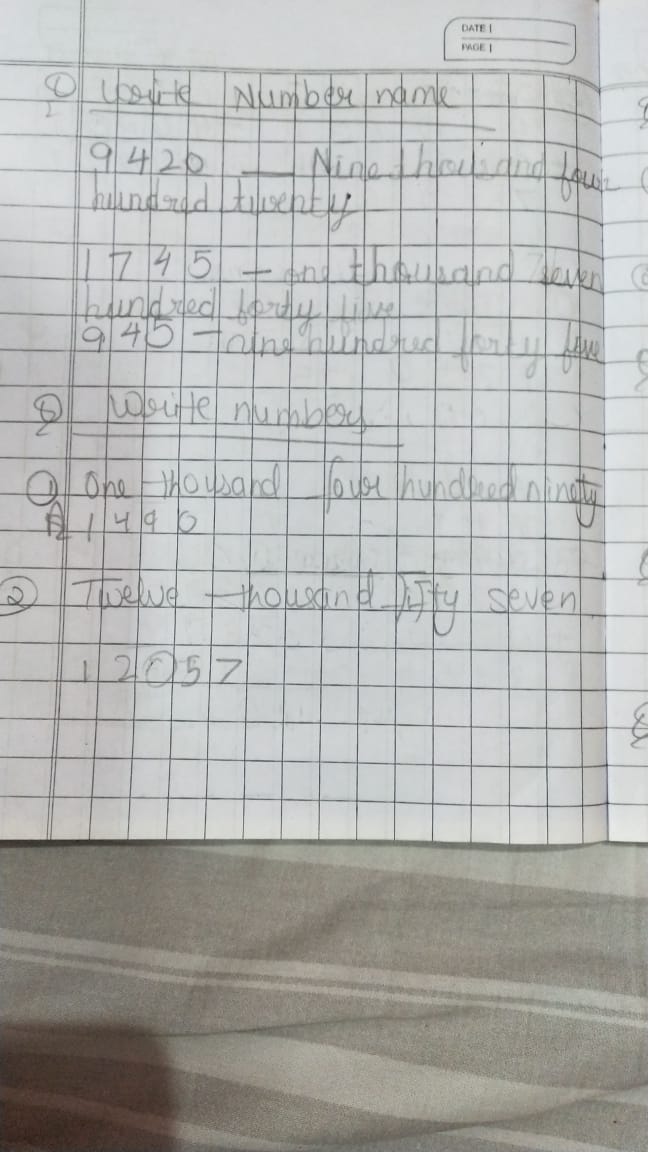 DATE |
PAGE |
Q Write Number name
9420 — Nine thousand four
hundred twenty
1745 — one thousand seven
hundred forty five
945 — nine hundred forty five
Q Write numbers
① One thousand four hundred ninety
A 1490
② Twelve thousand fifty seven
12057